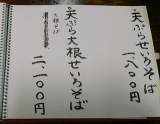 天ぷらせいろそば
一、八〇〇円
天ぷら大根せいろそば
大根そば
二、一〇〇円